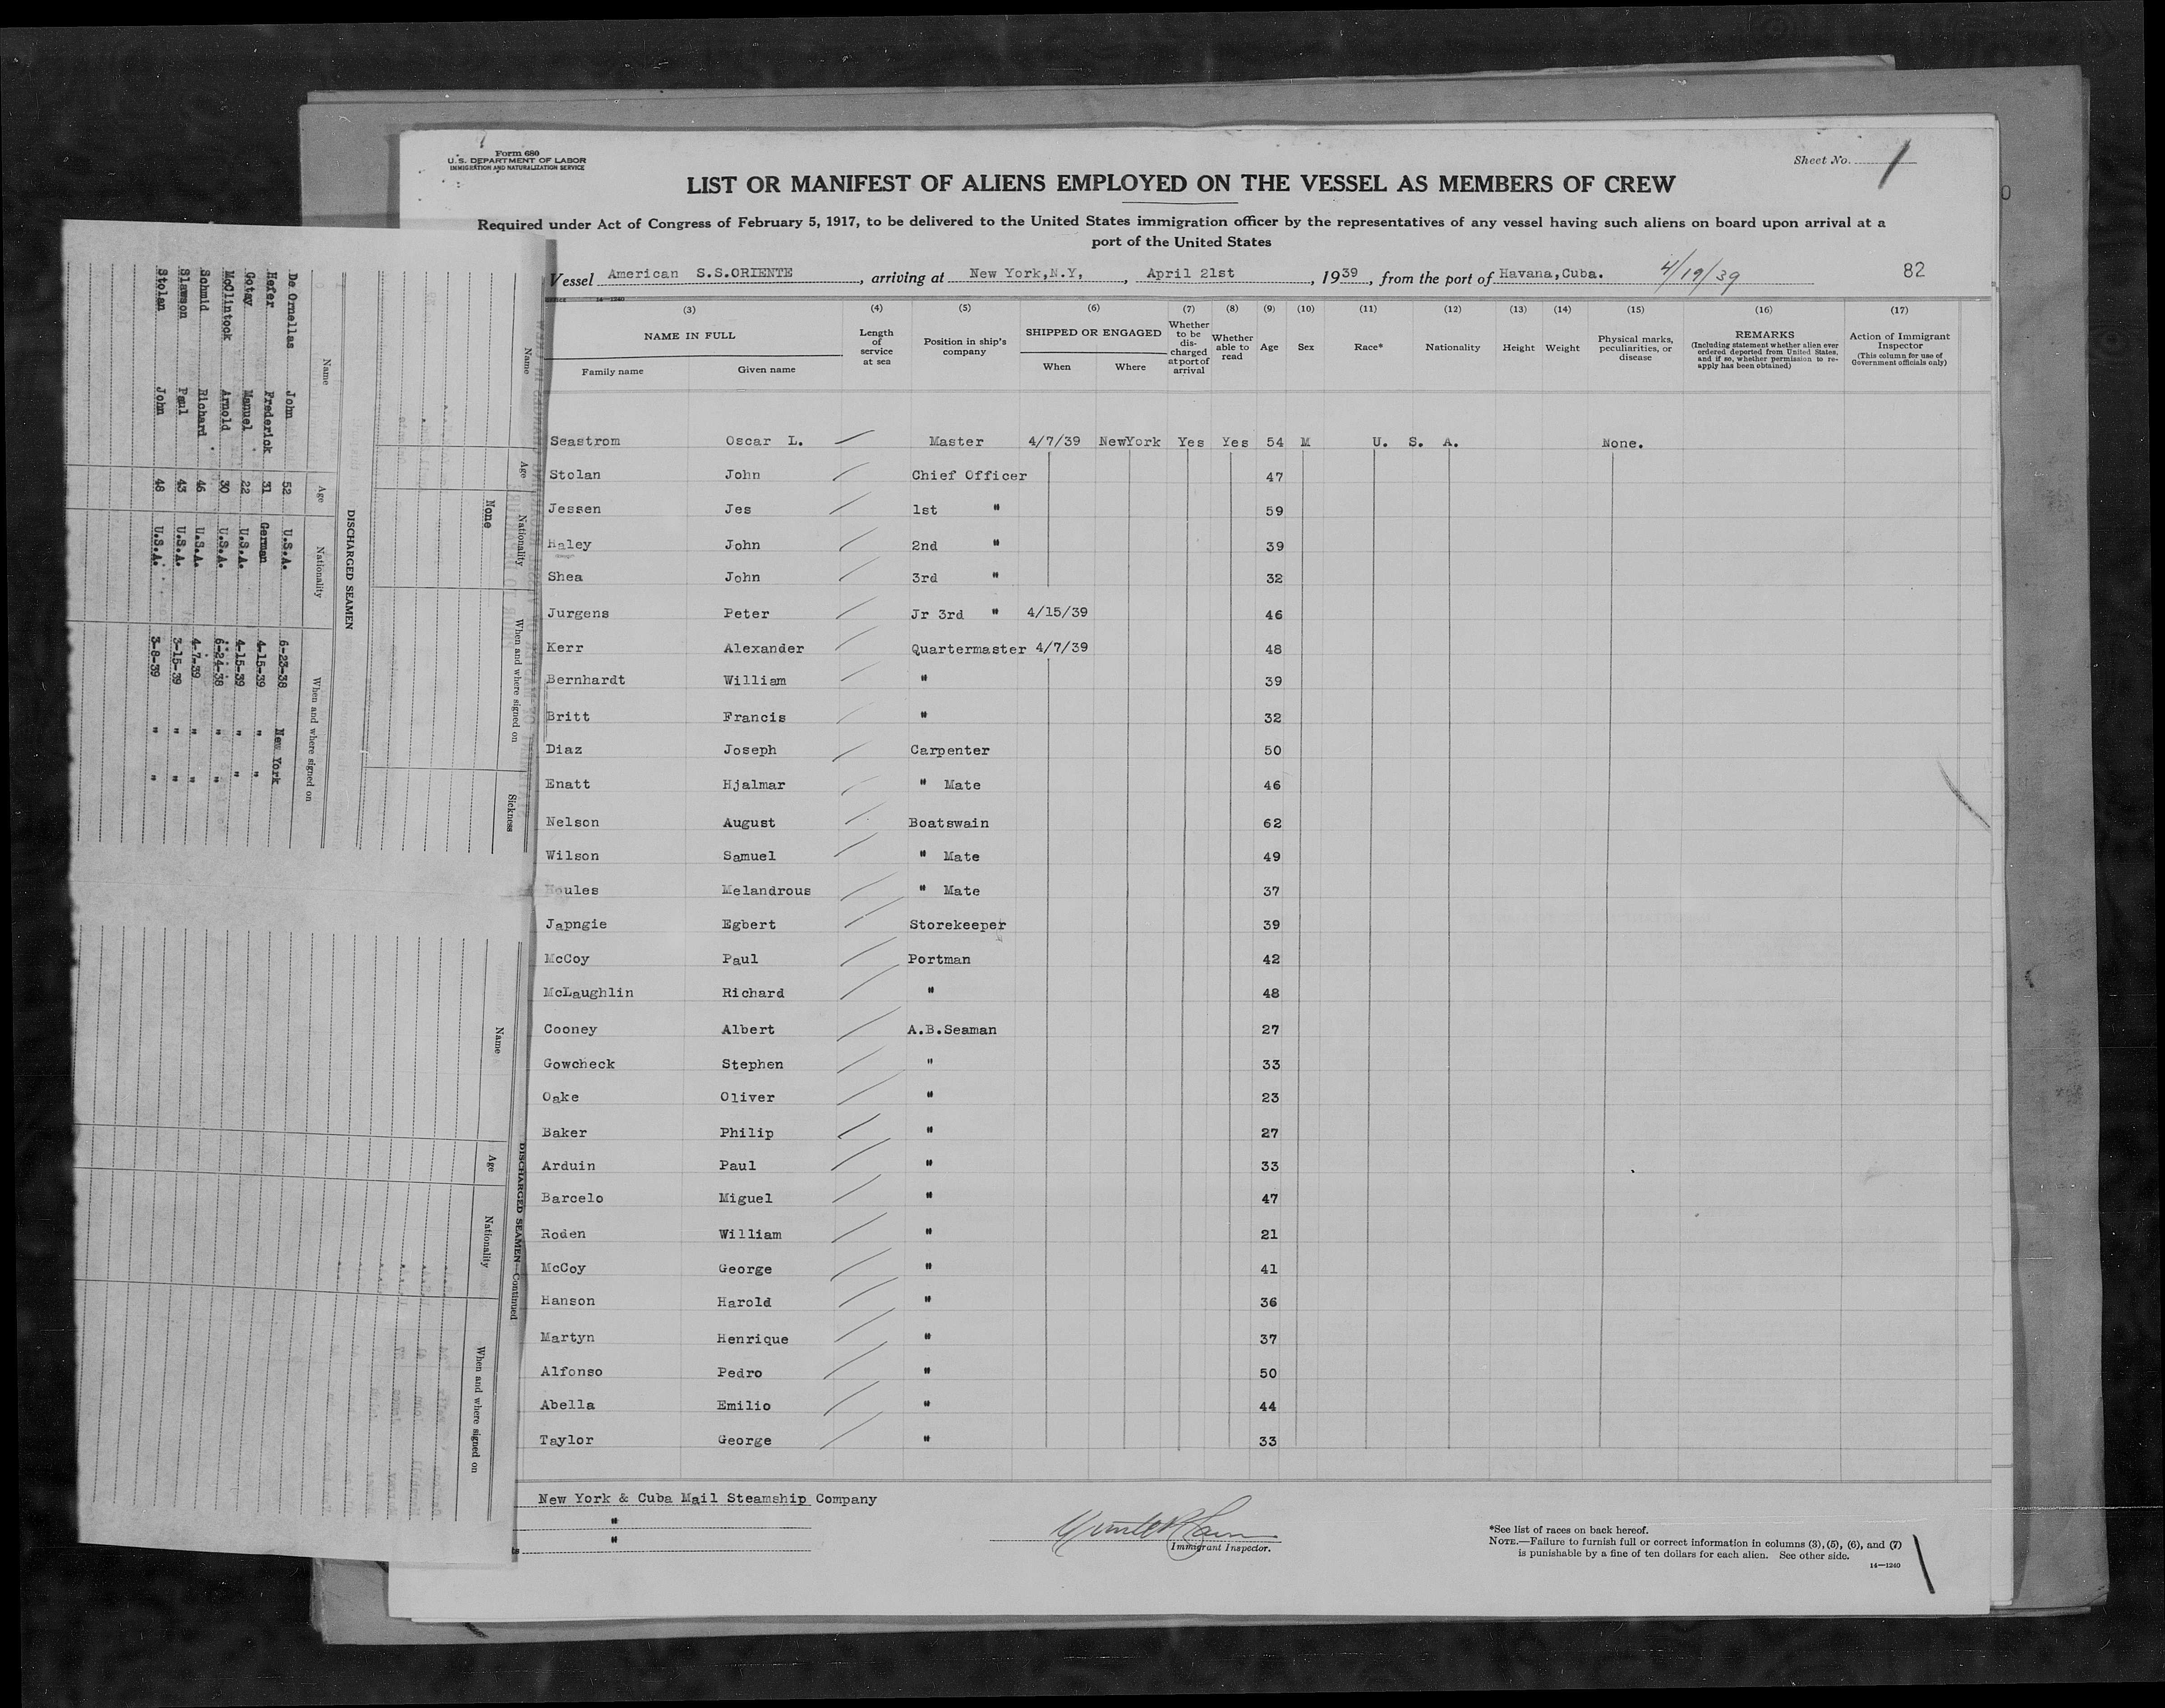 Form 680
U. S. DEPARTMENT OF LABOR
IMMIGRATION AND NATURALIZATION SERVICE
Sheet No. 1
LIST OR MANIFEST OF ALIENS EMPLOYED ON THE VESSEL AS MEMBERS OF CREW
Required under Act of Congress of February 5, 1917, to be delivered to the United States immigration officer by the representatives of any vessel having such aliens on board upon arrival at a
port of the United States
Vessel American S.S.ORIENTE, arriving at New York,N.Y, , April 21st, 1939, from the port of Havana,Cuba. 4/19/39
82
14—1240
(3) (4) (5) (6) (7) (8) (9) (10) (11) (12) (13) (14) (15) (16) (17)
NAME IN FULL
Family name
Given name
Length of service at sea
Position in ship's company
SHIPPED OR ENGAGED
When
Where
Whether to be discharged at port of arrival
Whether able to read
Age
Sex
Race*
Nationality
Height
Weight
Physical marks, peculiarities, or disease
REMARKS
(Including statement whether alien ever ordered deported from United States, and if so, whether permission to reapply has been obtained)
Action of Immigrant Inspector
(This column for use of Government officials only)
Seastrom Oscar L. Master 4/7/39 NewYork Yes Yes 54 M U. S. A. None.
Stolan John Chief Officer 47
Jessen Jes 1st " 59
Haley John 2nd " 39
Shea John 3rd " 32
Jurgens Peter Jr 3rd " 4/15/39 46
Kerr Alexander Quartermaster 4/7/39 48
Bernhardt William " 39
Britt Francis " 32
Diaz Joseph Carpenter 50
Enatt Hjalmar " Mate 46
Nelson August Boatswain 62
Wilson Samuel " Mate 49
Melandrous " Mate 37
Japngie Egbert Storekeeper 39
McCoy Paul Portman 42
McLaughlin Richard " 48
Cooney Albert A.B.Seaman 27
Gowcheck Stephen " 33
Oake Oliver " 23
Baker Philip " 27
Arduin Paul " 33
Barcelo Miguel " 47
Roden William " 21
McCoy George " 41
Hanson Harold " 36
Martyn Henrique " 37
Alfonso Pedro " 50
Abella Emilio " 44
Taylor George " 33
New York & Cuba Mail Steamship Company
"
"
Immigrant Inspector.
*See list of races on back hereof.
NOTE.—Failure to furnish full or correct information in columns (3), (5), (6), and (7)
is punishable by a fine of ten dollars for each alien. See other side.
14—1240
Name Age Nationality When and where signed on Sickness
None
DISCHARGED SEAMEN
Name Age Nationality When and where signed on
De Ornellas John 52 U.S.A. 6-23-38 New York
Hefer Frederick 31 German 4-15-39 " "
Gotay Manuel 22 U.S.A. 4-15-39 " "
McClintock Arnold 30 U.S.A. 6-24-38 " "
Schmid Richard 46 U.S.A. 4-7-39 " "
Slawson Paul 43 U.S.A. 3-15-39 " "
Stolan John 48 U.S.A. 3-8-39 " "
DISCHARGED SEAMEN—Continued
Name Age Nationality When and where signed on